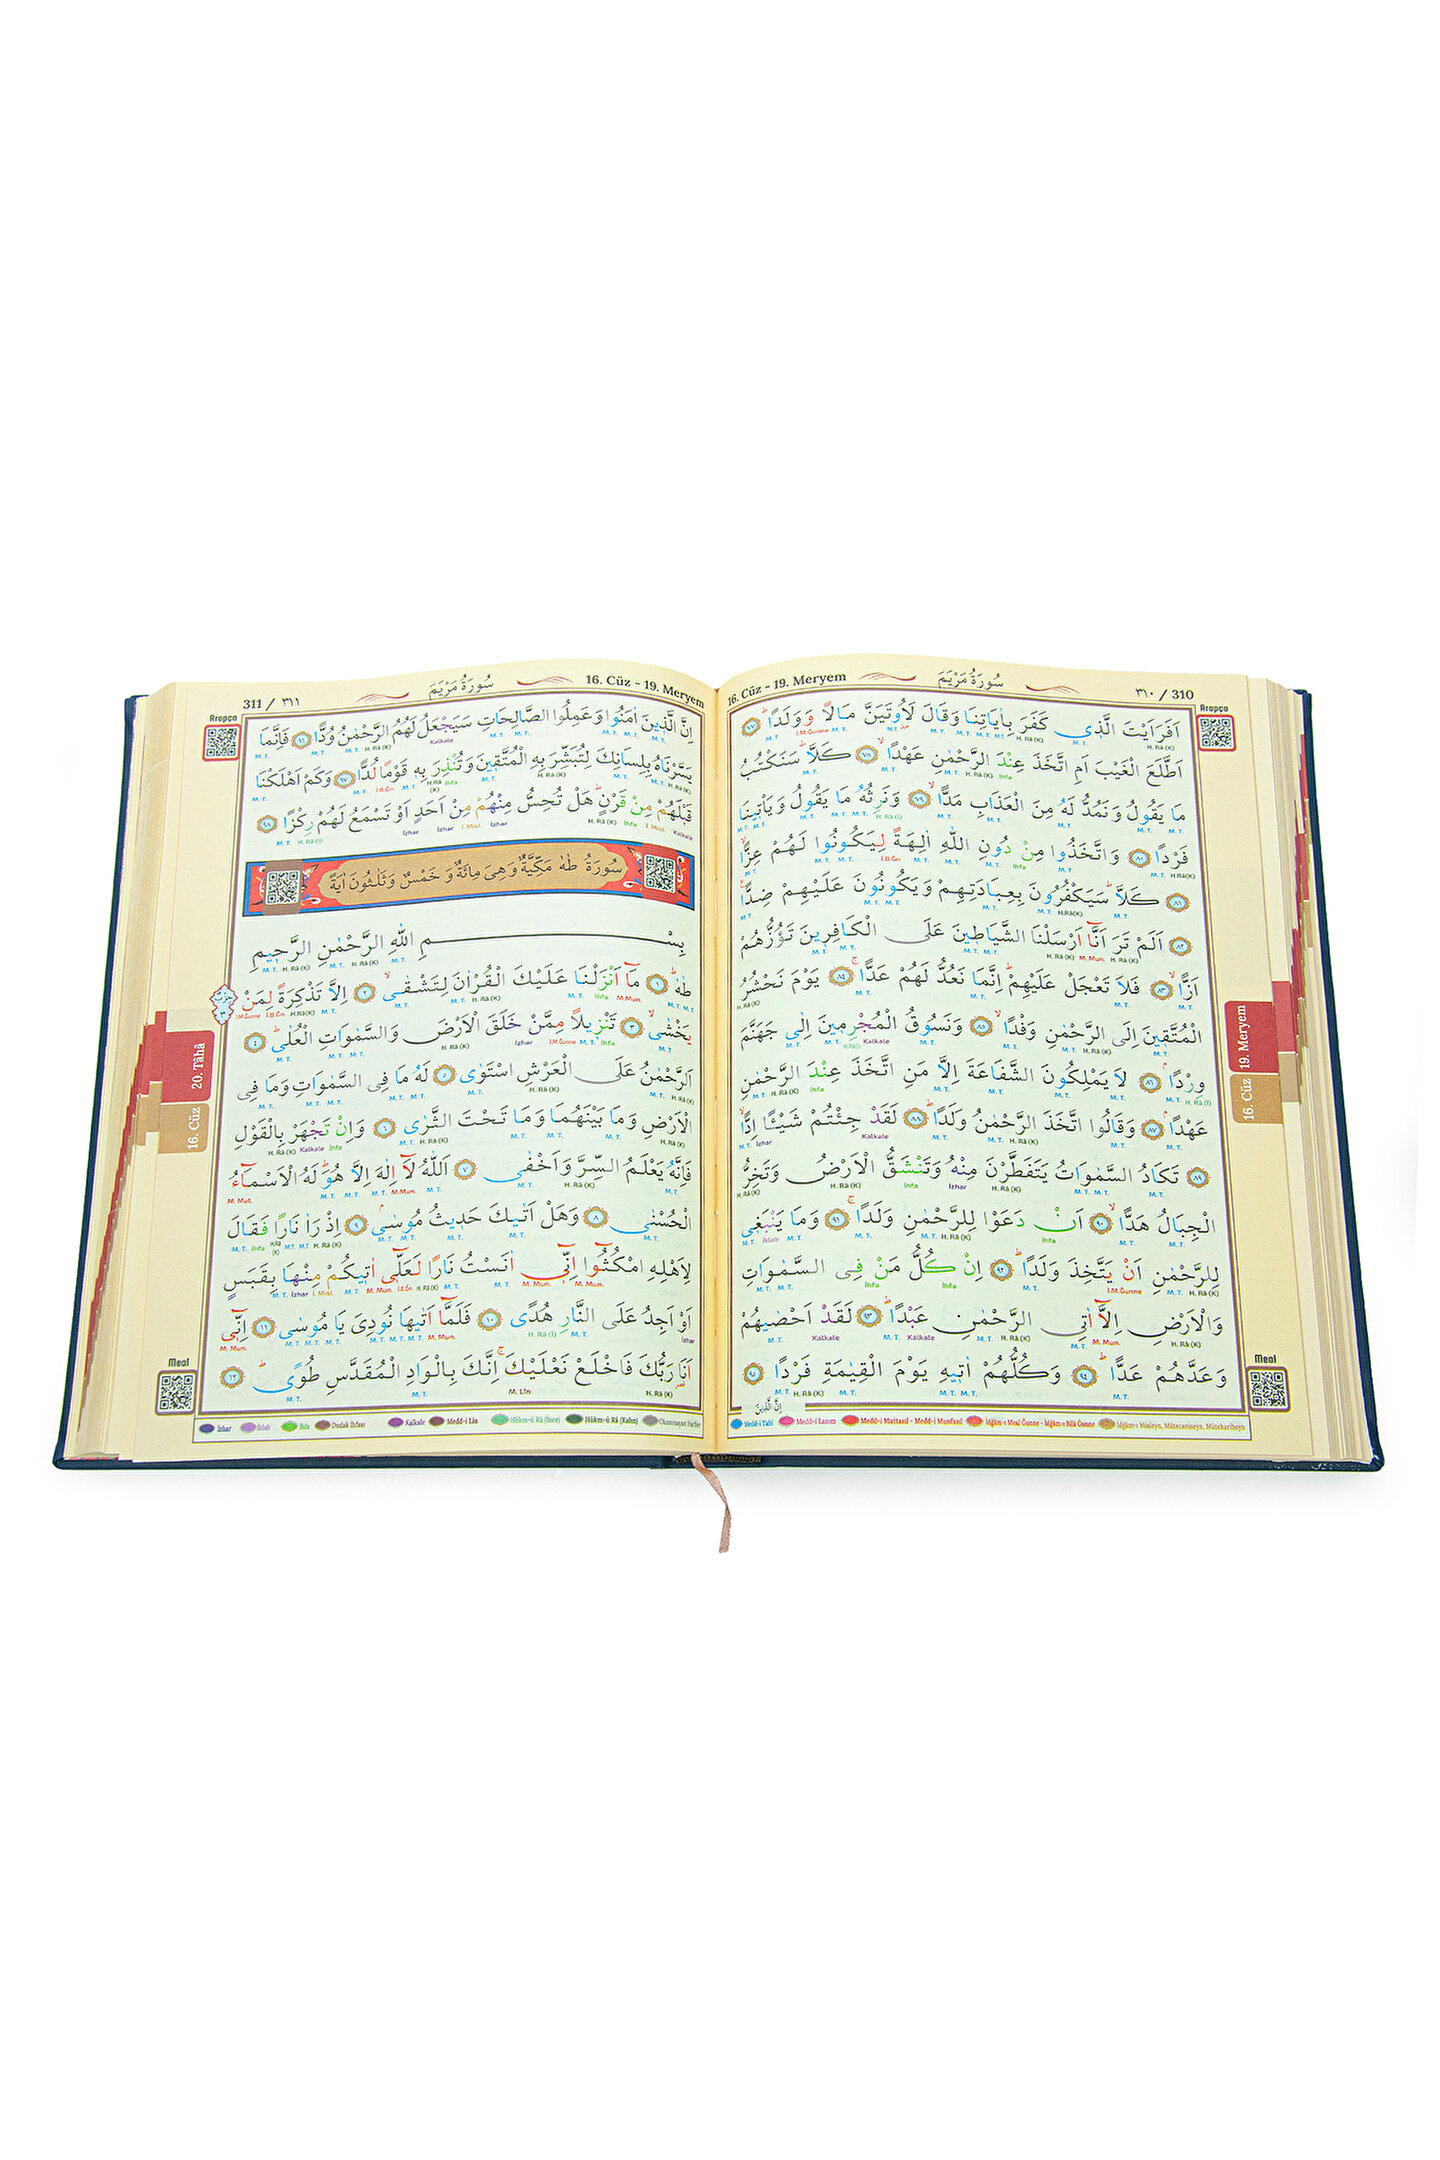 ٣١٠ / 310
سُورَةُ مَرْيَمَ
16. Cüz - 19. Meryem
Arapça
اَفَرَاَيْتَ الَّذ۪ي كَفَرَ بِاٰيَاتِنَا وَقَالَ لَاُو۫تَيَنَّ مَالاً وَوَلَدًاۜ ﴿٧٧﴾
اَطَّلَعَ الْغَيْبَ اَمِ اتَّخَذَ عِنْدَ الرَّحْمٰنِ عَهْدًاۙ ﴿٧٨﴾ كَلَّاۜ سَنَكْتُبُ
مَا يَقُولُ وَنَمُدُّ لَهُ مِنَ الْعَذَابِ مَدًّاۙ ﴿٧٩﴾ وَنَرِثُهُ مَا يَقُولُ وَيَاْت۪ينَا
فَرْدًا ﴿٨٠﴾ وَاتَّخَذُوا مِنْ دُونِ اللّٰهِ اٰلِهَةً لِيَكُونُوا لَهُمْ عِزًّاۙ
﴿٨١﴾ كَلَّاۜ سَيَكْفُرُونَ بِعِبَادَتِهِمْ وَيَكُونُونَ عَلَيْهِمْ ضِدًّا۟
﴿٨٢﴾ اَلَمْ تَرَ اَنَّٓا اَرْسَلْنَا الشَّيَاط۪ينَ عَلَى الْكَافِر۪ينَ تَؤُزُّهُمْ
اَزًّاۙ ﴿٨٣﴾ فَلَا تَعْجَلْ عَلَيْهِمْۜ اِنَّمَا نَعُدُّ لَهُمْ عَدًّاۚ ﴿٨٤﴾ يَوْمَ نَحْشُرُ
الْمُتَّق۪ينَ اِلَى الرَّحْمٰنِ وَفْدًاۙ ﴿٨٥﴾ وَنَسُوقُ الْمُجْرِم۪ينَ اِلٰى جَهَنَّمَ
وِرْدًاۢ ﴿٨٦﴾ لَا يَمْلِكُونَ الشَّفَاعَةَ اِلَّا مَنِ اتَّخَذَ عِنْدَ الرَّحْمٰنِ
عَهْدًاۢ ﴿٨٧﴾ وَقَالُوا اتَّخَذَ الرَّحْمٰنُ وَلَدًاۜ ﴿٨٨﴾ لَقَدْ جِئْتُمْ شَيْـًٔا اِدًّاۙ
﴿٨٩﴾ تَكَادُ السَّمٰوَاتُ يَتَفَطَّرْنَ مِنْهُ وَتَنْشَقُّ الْاَرْضُ وَتَخِرُّ
الْجِبَالُ هَدًّاۙ ﴿٩٠﴾ اَنْ دَعَوْا لِلرَّحْمٰنِ وَلَدًاۚ ﴿٩١﴾ وَمَا يَنْبَغ۪ي
لِلرَّحْمٰنِ اَنْ يَتَّخِذَ وَلَدًاۜ ﴿٩٢﴾ اِنْ كُلُّ مَنْ فِي السَّمٰوَاتِ
وَالْاَرْضِ اِلَّٓا اٰتِي الرَّحْمٰنِ عَبْدًاۜ ﴿٩٣﴾ لَقَدْ اَحْصٰيهُمْ
وَعَدَّهُمْ عَدًّاۜ ﴿٩٤﴾ وَكُلُّهُمْ اٰت۪يهِ يَوْمَ الْقِيٰمَةِ فَرْدًا ﴿٩٥﴾
اِنَّ الَّذ۪ينَ
Medd-i Tabî Medd-i Lazım Medd-i Muttasıl - Medd-i Munfasıl İdğam-ı Meal Ğunne - İdğam-ı Bilâ Ğunne İdğam-ı Misleyn, Mütecaniseyn, Mütekaribeyn
19. Meryem
16. Cüz
Meal
311 / ٣١١
سُورَةُ مَرْيَمَ
16. Cüz - 19. Meryem
Arapça
اِنَّ الَّذ۪ينَ اٰمَنُوا وَعَمِلُوا الصَّالِحَاتِ سَيَجْعَلُ لَهُمُ الرَّحْمٰنُ وُدًّا ﴿٩٦﴾ فَاِنَّمَا
يَسَّرْنَاهُ بِلِسَانِكَ لِتُبَشِّرَ بِهِ الْمُتَّق۪ينَ وَتُنْذِرَ بِه۪ قَوْمًا لُدًّا ﴿٩٧﴾ وَكَمْ اَهْلَكْنَا
قَبْلَهُمْ مِنْ قَرْنٍۜ هَلْ تُحِسُّ مِنْهُمْ مِنْ اَحَدٍ اَوْ تَسْمَعُ لَهُمْ رِكْزًا ﴿٩٨﴾
سُورَةُ طٰهٰ مَكِّيَّةٌ وَهِيَ مِائَةٌ وَخَمْسٌ وَثَلٰثُونَ اٰيَةً
بِسْمِ اللّٰهِ الرَّحْمٰنِ الرَّح۪يمِ
طٰهٰۜ ﴿١﴾ مَٓا اَنْزَلْنَا عَلَيْكَ الْقُرْاٰنَ لِتَشْقٰىۙ ﴿٢﴾ اِلَّا تَذْكِرَةً لِمَنْ
يَخْشٰىۙ ﴿٣﴾ تَنْز۪يلاً مِمَّنْ خَلَقَ الْاَرْضَ وَالسَّمٰوَاتِ الْعُلٰىۜ ﴿٤﴾
اَلرَّحْمٰنُ عَلَى الْعَرْشِ اسْتَوٰى ﴿٥﴾ لَهُ مَا فِي السَّمٰوَاتِ وَمَا فِي
الْاَرْضِ وَمَا بَيْنَهُمَا وَمَا تَحْتَ الثَّرٰى ﴿٦﴾ وَاِنْ تَجْهَرْ بِالْقَوْلِ
فَاِنَّهُ يَعْلَمُ السِّرَّ وَاَخْفٰى ﴿٧﴾ اَللّٰهُ لَٓا اِلٰهَ اِلَّا هُوَۜ لَهُ الْاَسْمَٓاءُ
الْحُسْنٰى ﴿٨﴾ وَهَلْ اَتٰيكَ حَد۪يثُ مُوسٰىۢ ﴿٩﴾ اِذْ رَاٰ نَارًا فَقَالَ
لِاَهْلِهِ امْكُثُٓوا اِنّ۪ٓي اٰنَسْتُ نَارًا لَعَلّ۪ٓي اٰت۪يكُمْ مِنْهَا بِقَبَسٍ
اَوْ اَجِدُ عَلَى النَّارِ هُدًى ﴿١٠﴾ فَلَمَّٓا اَتٰيهَا نُودِيَ يَا مُوسٰى ﴿١١﴾ اِنّ۪ٓي
اَنَا۬ رَبُّكَ فَاخْلَعْ نَعْلَيْكَۚ اِنَّكَ بِالْوَادِ الْمُقَدَّسِ طُوًىۜ ﴿١٢﴾
İzhar İklab İhfa Dudak İhfası Kalkale Medd-i Lin Hükm-ü Râ (İnce) Hükm-ü Râ (Kalın) Okunmayan Harfler
20. Tâhâ
16. Cüz
Meal